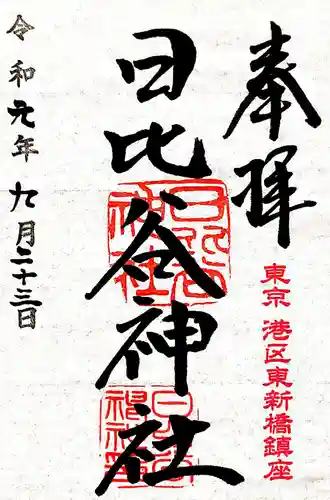 奉拝
東京 港区東新橋鎮座
日比谷神社
令和元年九月二十三日